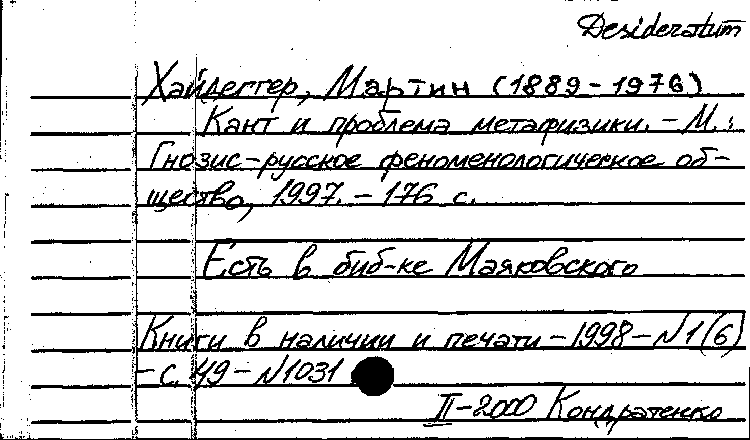 Desideratum
Хайдеггер, Мартин (1889-1976)
Кант и проблема метафизики. - М.:
Гнозис-русское феноменологическое об-
щество, 1997. - 176 с.
Есть в биб-ке Маяковского
Книги в наличии и печати - 1998 - N1(6)
- с. 49 - N1031
II-2000 Кондратенко